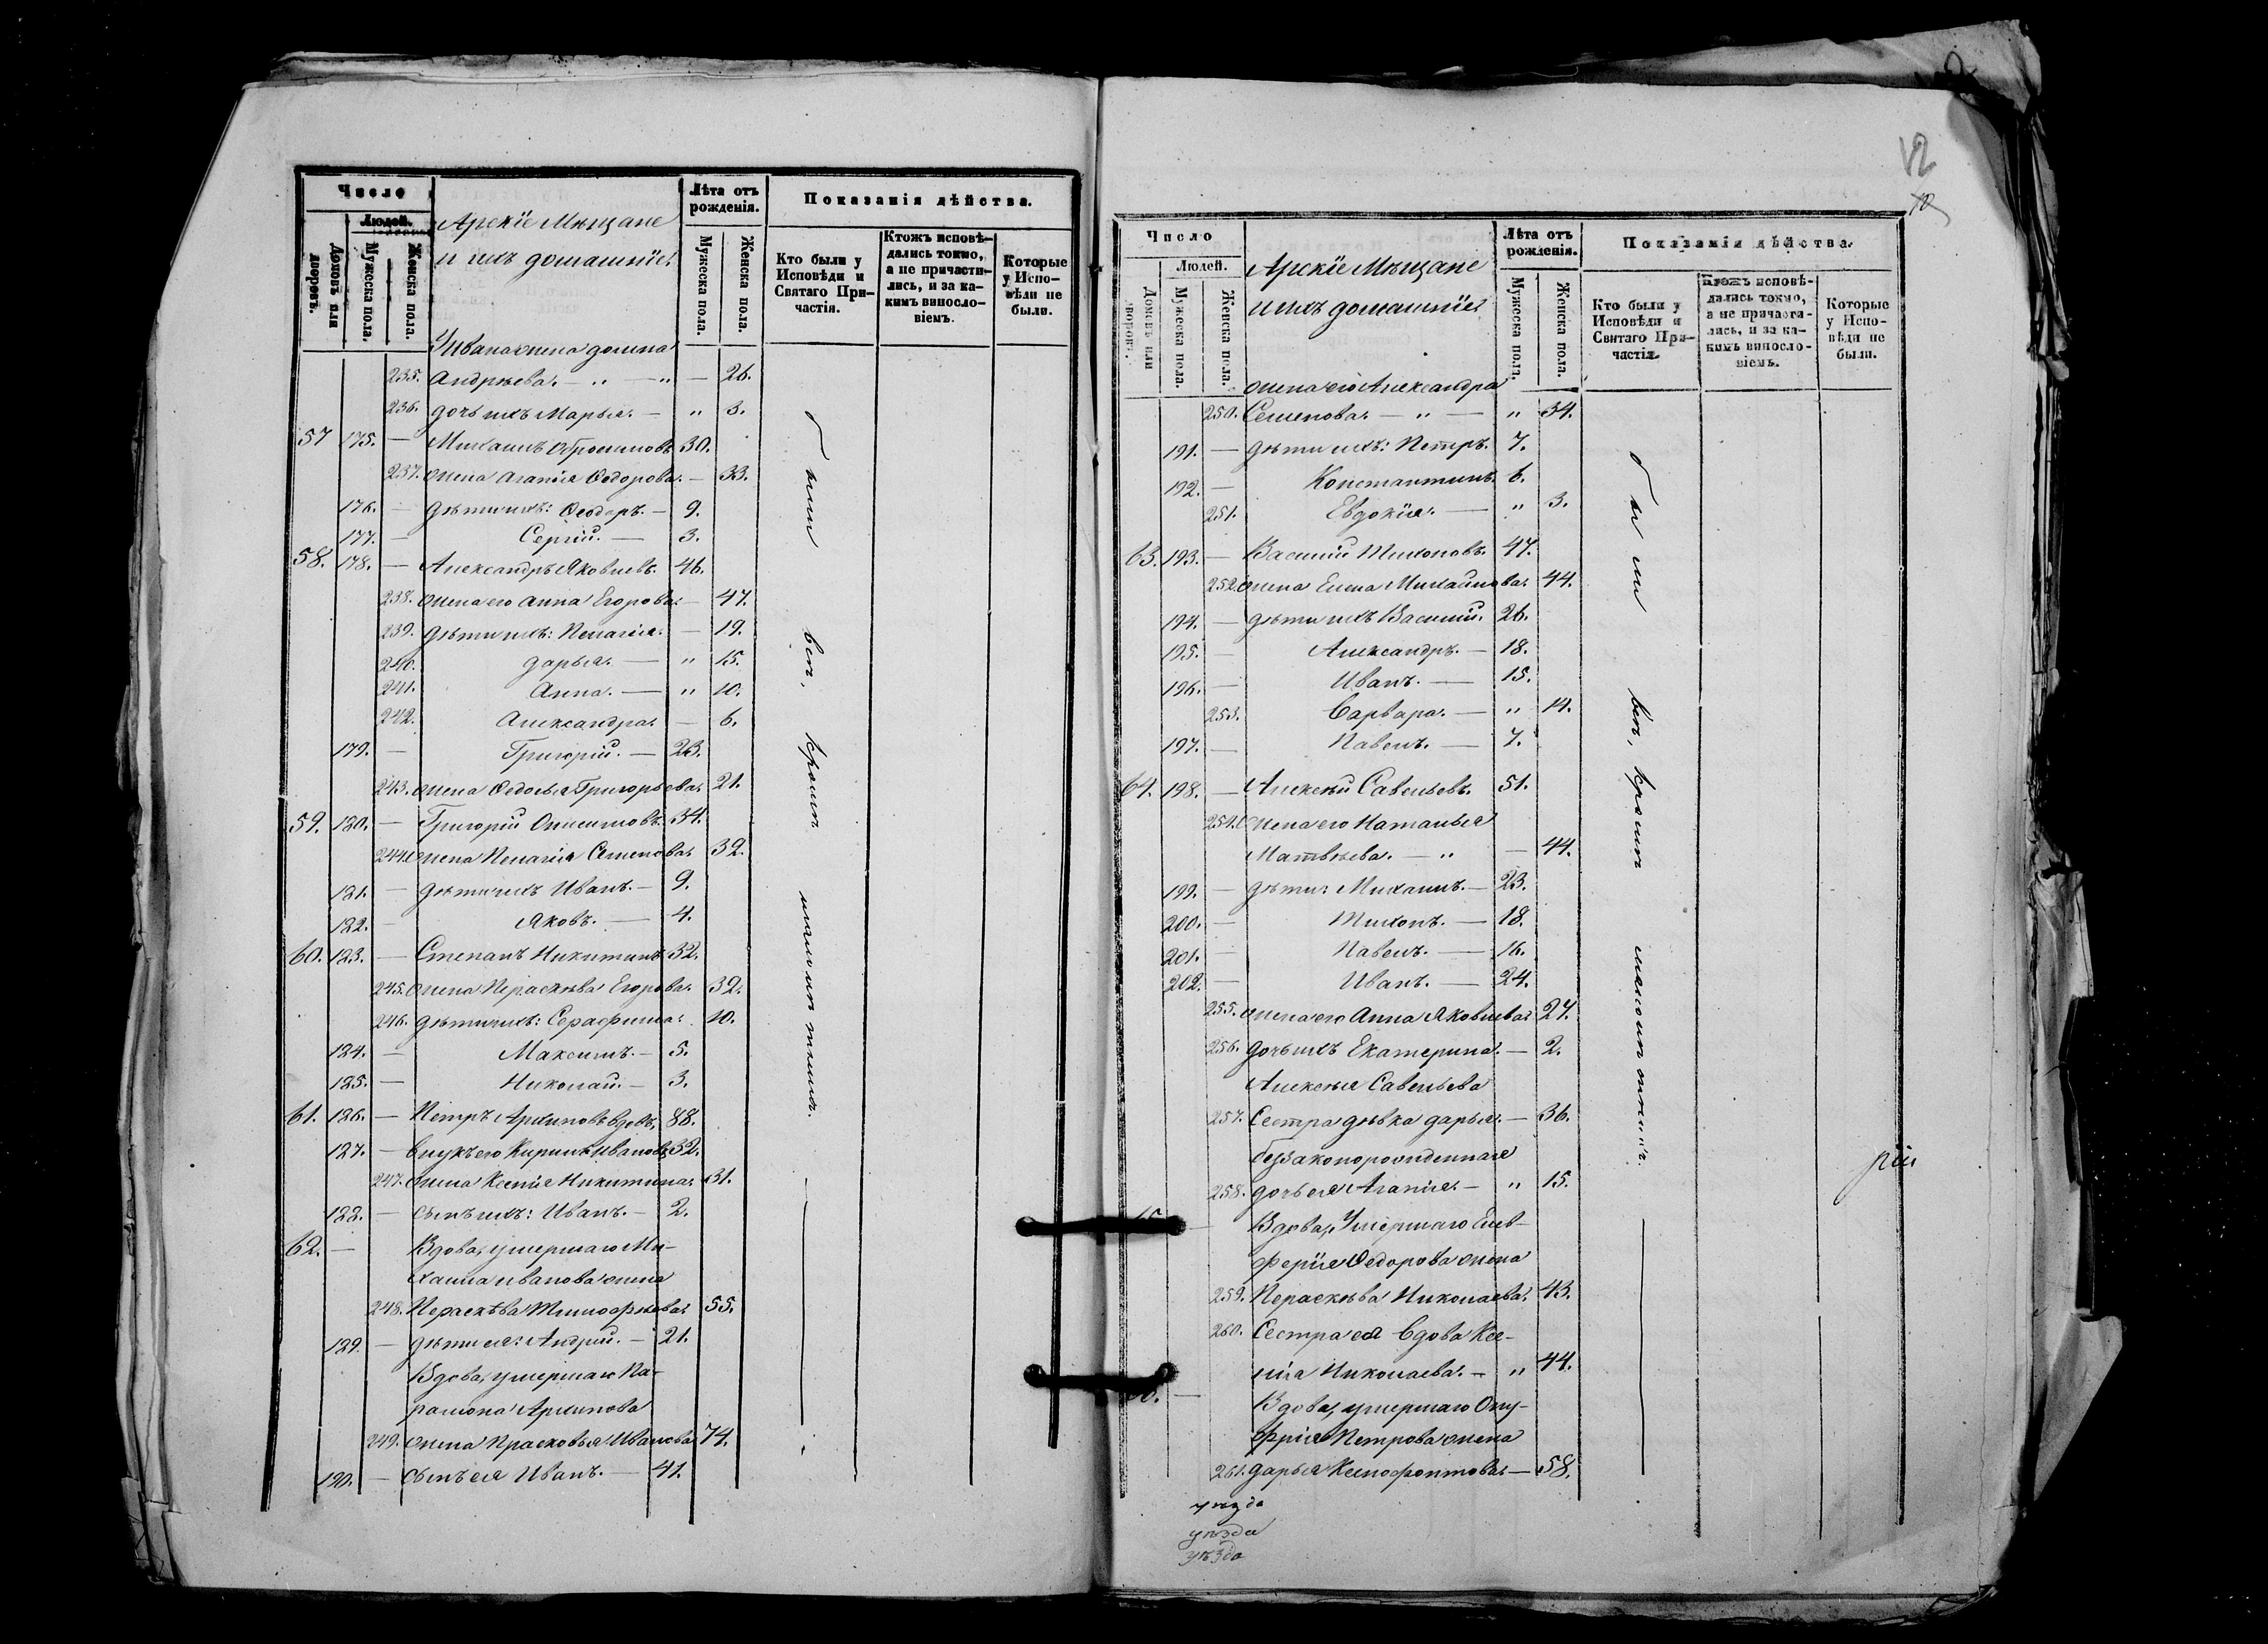 Число
Людей.
Домовъ или дворовъ.
Мужеска пола.
Женска пола.
Арскіе Мѣщане
и ихъ домашніе.
Лѣта отъ рожденія.
Мужеска пола.
Женска пола.
Показанія дѣйства.
Кто были у Исповѣди и Святаго При-частія.
Ктожъ исповѣ-дались токмо, а не причасти-лись, и за ка-кимъ виносло-віемъ.
Которые у Испо-вѣди не были.
У Ивана жена домна
235. Андрѣева. — „ — „ — 26.
236. дочь ихъ Марья. — „ 3.
57 175. — Михаилъ Ѳроимовъ 30.
237. жена Агапія Ѳедорова. — 33.
176. — дѣти ихъ: Ѳеодоръ. — 9.
177. — Сергій. — 3.
58. 178. — Александръ Яковлевъ. 46.
238. жена его Анна Егорова. — 47.
239. дѣти ихъ: Пелагія. — 19.
240. дарья. — „ 15.
241. Анна. — „ 10.
242. Александра. — 6.
179. — Григорій. — 23.
243. жена Ѳедосья Григорьева. 21.
59. 180. — Григорій Онисимовъ. 34.
244. жена Пелагія Семенова. 32.
181. — дѣти ихъ Иванъ. — 9.
182. — Яковъ. — 4.
60. 183. — Степанъ Никитинъ 32.
245. жена Параскѣва Егорова. 32.
246. дѣти ихъ: Серафима. 10.
184. — Максимъ. — 5.
185. — Николай. — 3.
61. 186. — Петръ Архиповъ вдовъ, 88.
187. — внукъ его Кирилъ Ивановъ 32.
247. жена Ксенія Никитина. 31.
188. — сынъ ихъ: Иванъ. — 2.
62. — Вдова, умершаго Ми-
хаила иванова жена
248. Параскѣва Тимофѣева. 55.
189. — дѣти ея: Андрей. — 21.
Вдова, умершаго Па-
рамона Архипова
249. жена Прасковья Иванова 74.
190. — сынъ ея Иванъ. — 41.
были всѣ, кромѣ малолѣтнихъ.
12
10
Число
Людей.
Домовъ или дворовъ.
Мужеска пола.
Женска пола.
Арскіе Мѣщане
и ихъ домашніе
Лѣта отъ рожденія.
Мужеска пола.
Женска пола.
Показанія дѣйства.
Кто были у Исповѣди и Святаго При-частія.
Ктожъ исповѣ-дались токмо, а не причасти-лись, и за ка-кимъ виносло-віемъ.
Которые у Испо-вѣди не были.
жена его Александра
250. Семенова. — „ — „ 34.
191. — дѣти ихъ: Петръ. 7.
192. — Константинъ. 6.
251. Евдокія. — „ 3.
63. 193. — Василій Тихоновъ. 47.
252. жена Елена Михайлова. 44.
194. — дѣти ихъ Василій. 26.
195. — Александръ. — 18.
196. — Иванъ. — 15.
253. Варвара. — „ 14.
197. — Павелъ. — 7.
64. 198. — Алексѣй Савельевъ. 51.
254. жена его Наталья
Матвѣева. — „ — 44.
199. — дѣти: Михаилъ. — 23.
200. — Тихонъ. — 18.
201. — Павелъ. — 16.
202. — Иванъ. — 24.
255. жена его Анна Яковлева 27.
256. дочь ихъ Екатерина. — 2.
Алексѣя Савельева
257. Сестра дѣвка дарья. — 36.
беззаконорожденная
258. дочь ея Агапія. — „ 15.
— Вдова, Умершаго Елев-
ферія Ѳедорова жена
259. Параскѣва Николаева. 43.
260. Сестра ея вдова Ксе-
нія Николаева. — „ 44.
— Вдова, умершаго Ону-
фрія Петрова жена
261. дарья Ксенофонтова. — 58.
были всѣ, кромѣ малолѣтнихъ.
рій
уѣзда
уѣзда
уѣзда